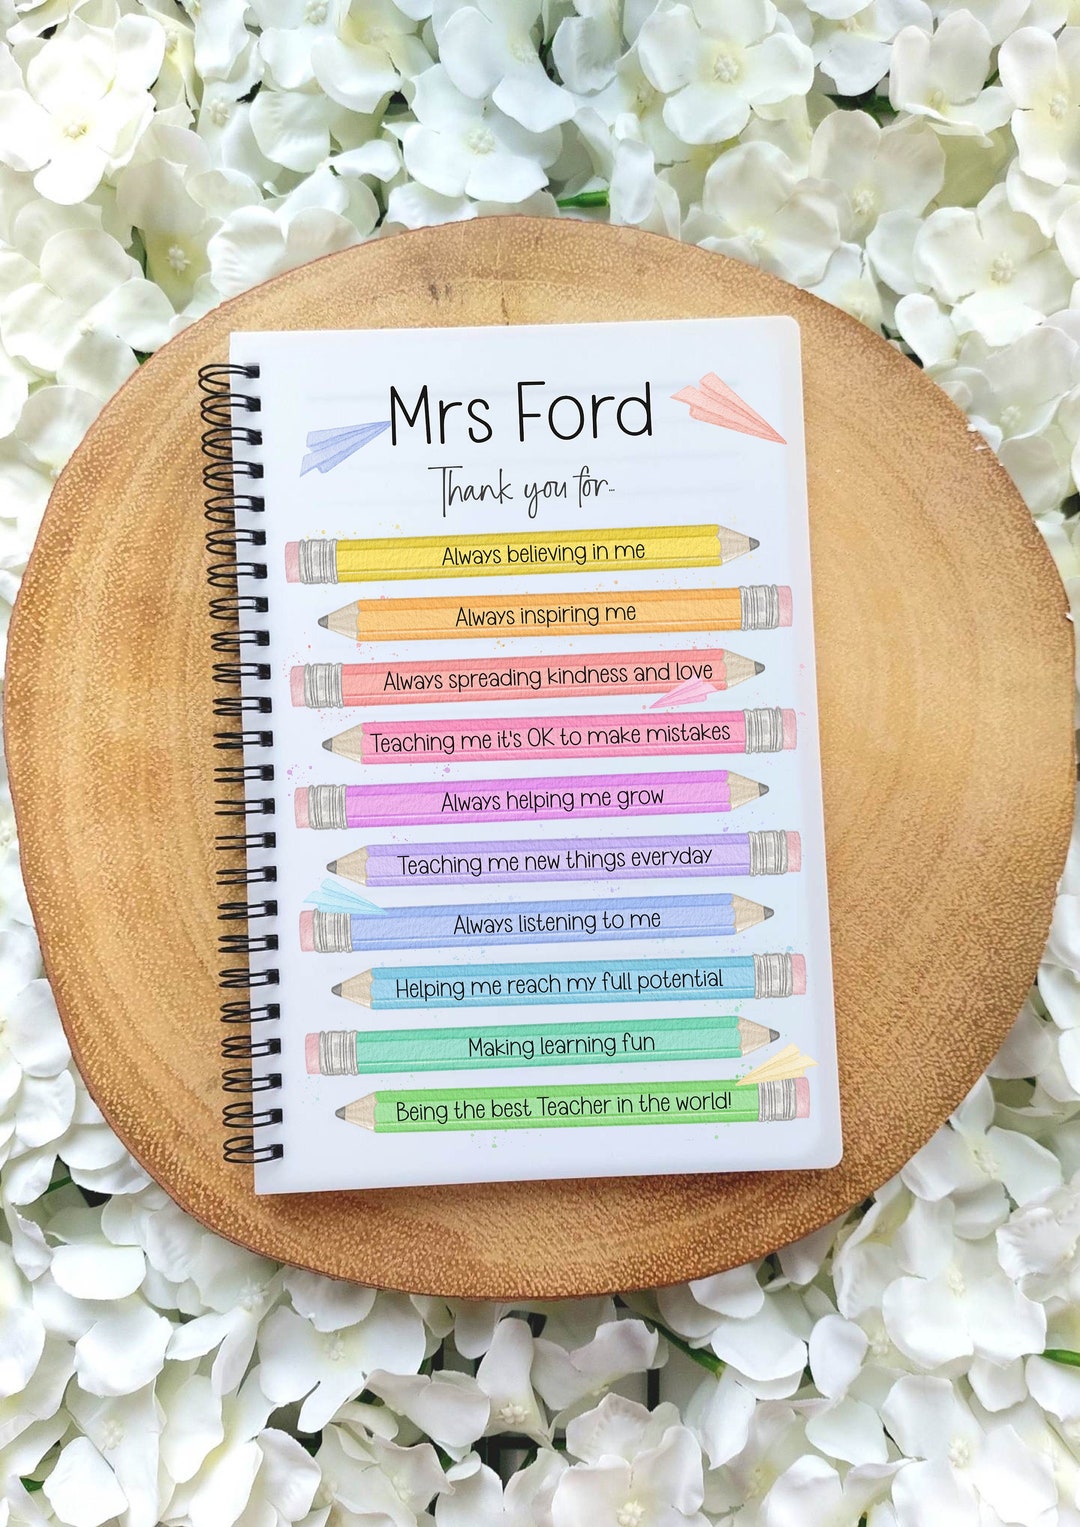 Mrs Ford
Thank you for...
Always believing in me
Always inspiring me
Always spreading kindness and love
Teaching me it's OK to make mistakes
Always helping me grow
Teaching me new things everyday
Always listening to me
Helping me reach my full potential
Making learning fun
Being the best Teacher in the world!